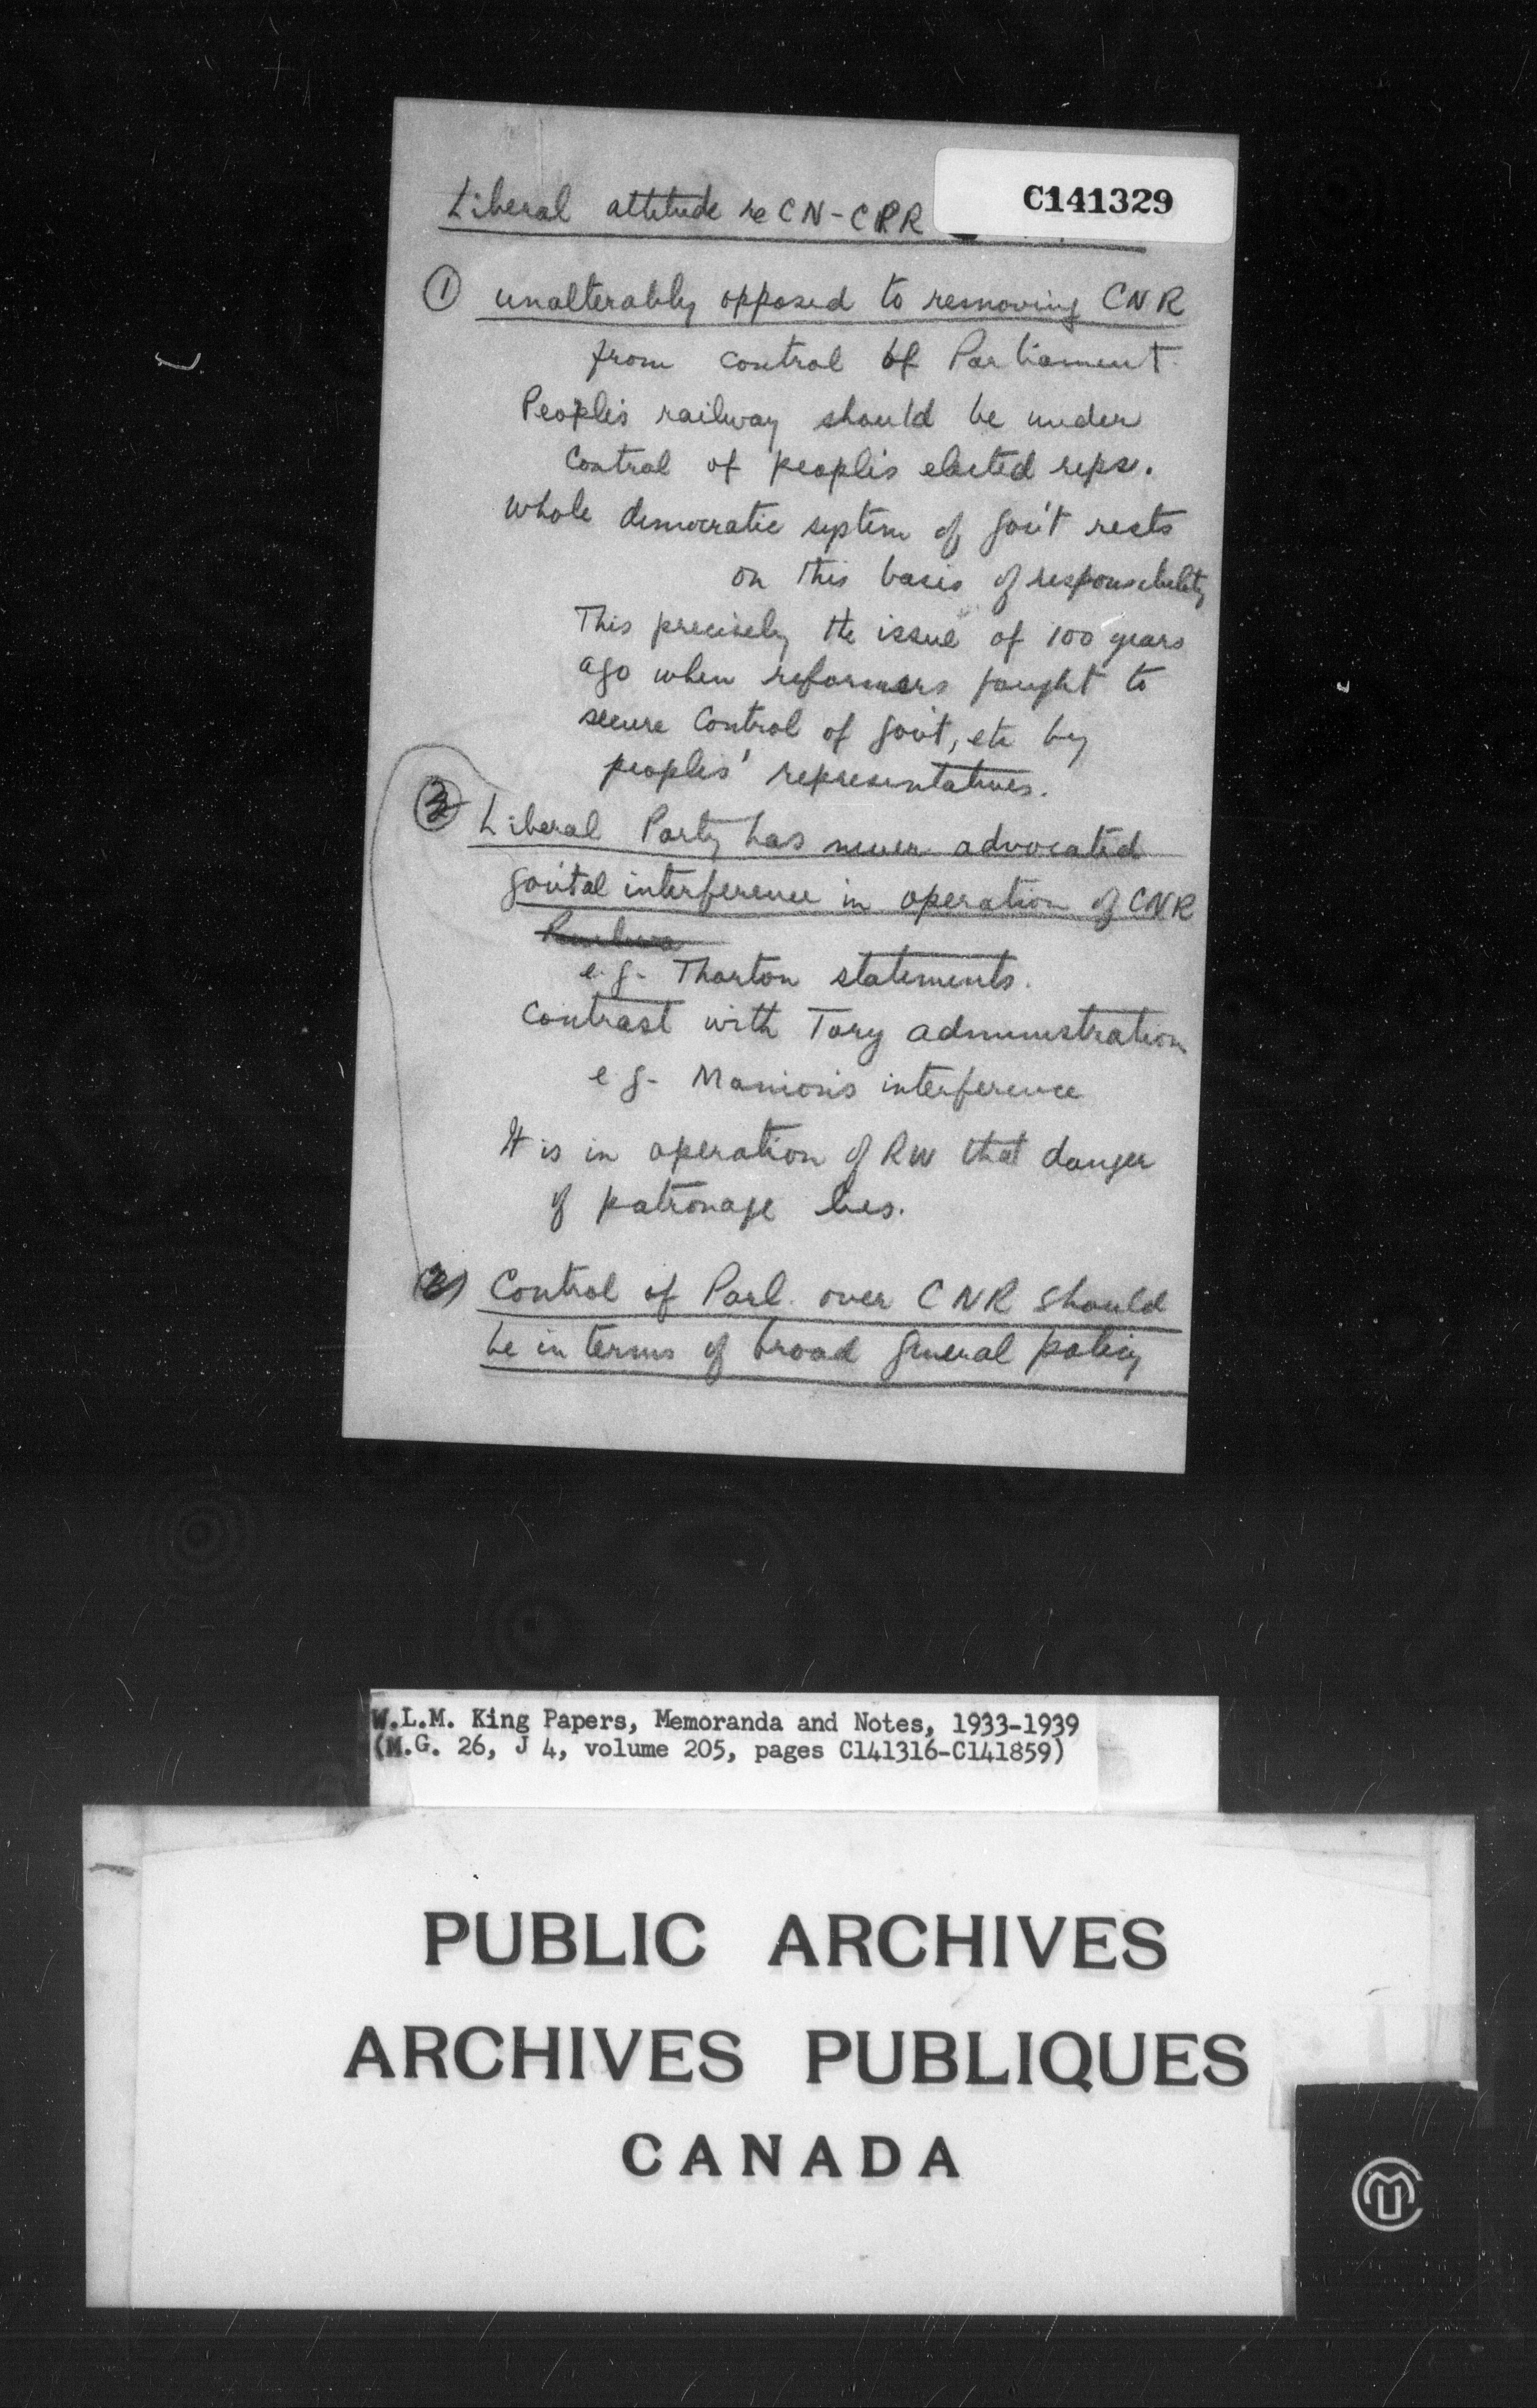 C141329
Liberal attitude re CN-CPR
① unalterably opposed to removing CNR
from control of Parliament.
People's railway should be under
control of people's elected reps.
Whole democratic system of gov't rests
on this basis of responsibility
This precisely the issue of 100 years
ago when reformers fought to
secure control of govt, etc by
peoples' representatives.
③ Liberal Party has never advocated
gov'tal interference in operation of CNR
e.g. Thorton statements.
Contrast with Tory administration
e g - Manion's interference
It is in operation of RW that danger
of patronage lies.
(2) Control of Parl. over CNR should
be in terms of broad general policy
W.L.M. King Papers, Memoranda and Notes, 1933-1939
(M.G. 26, J 4, volume 205, pages C141316-C141859)
PUBLIC ARCHIVES
ARCHIVES PUBLIQUES
CANADA